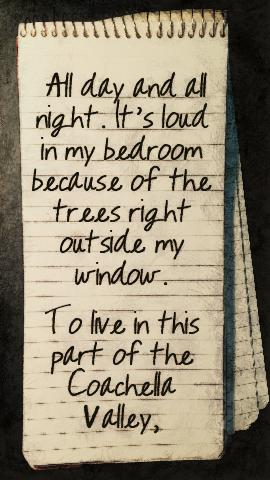 All day and all
night. It's loud
in my bedroom
because of the
trees right
outside my
window.
To live in this
part of the
Coachella
Valley,